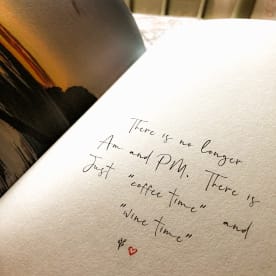 There is no longer
Am and PM. There is
Just "coffee time" and
"wine time"